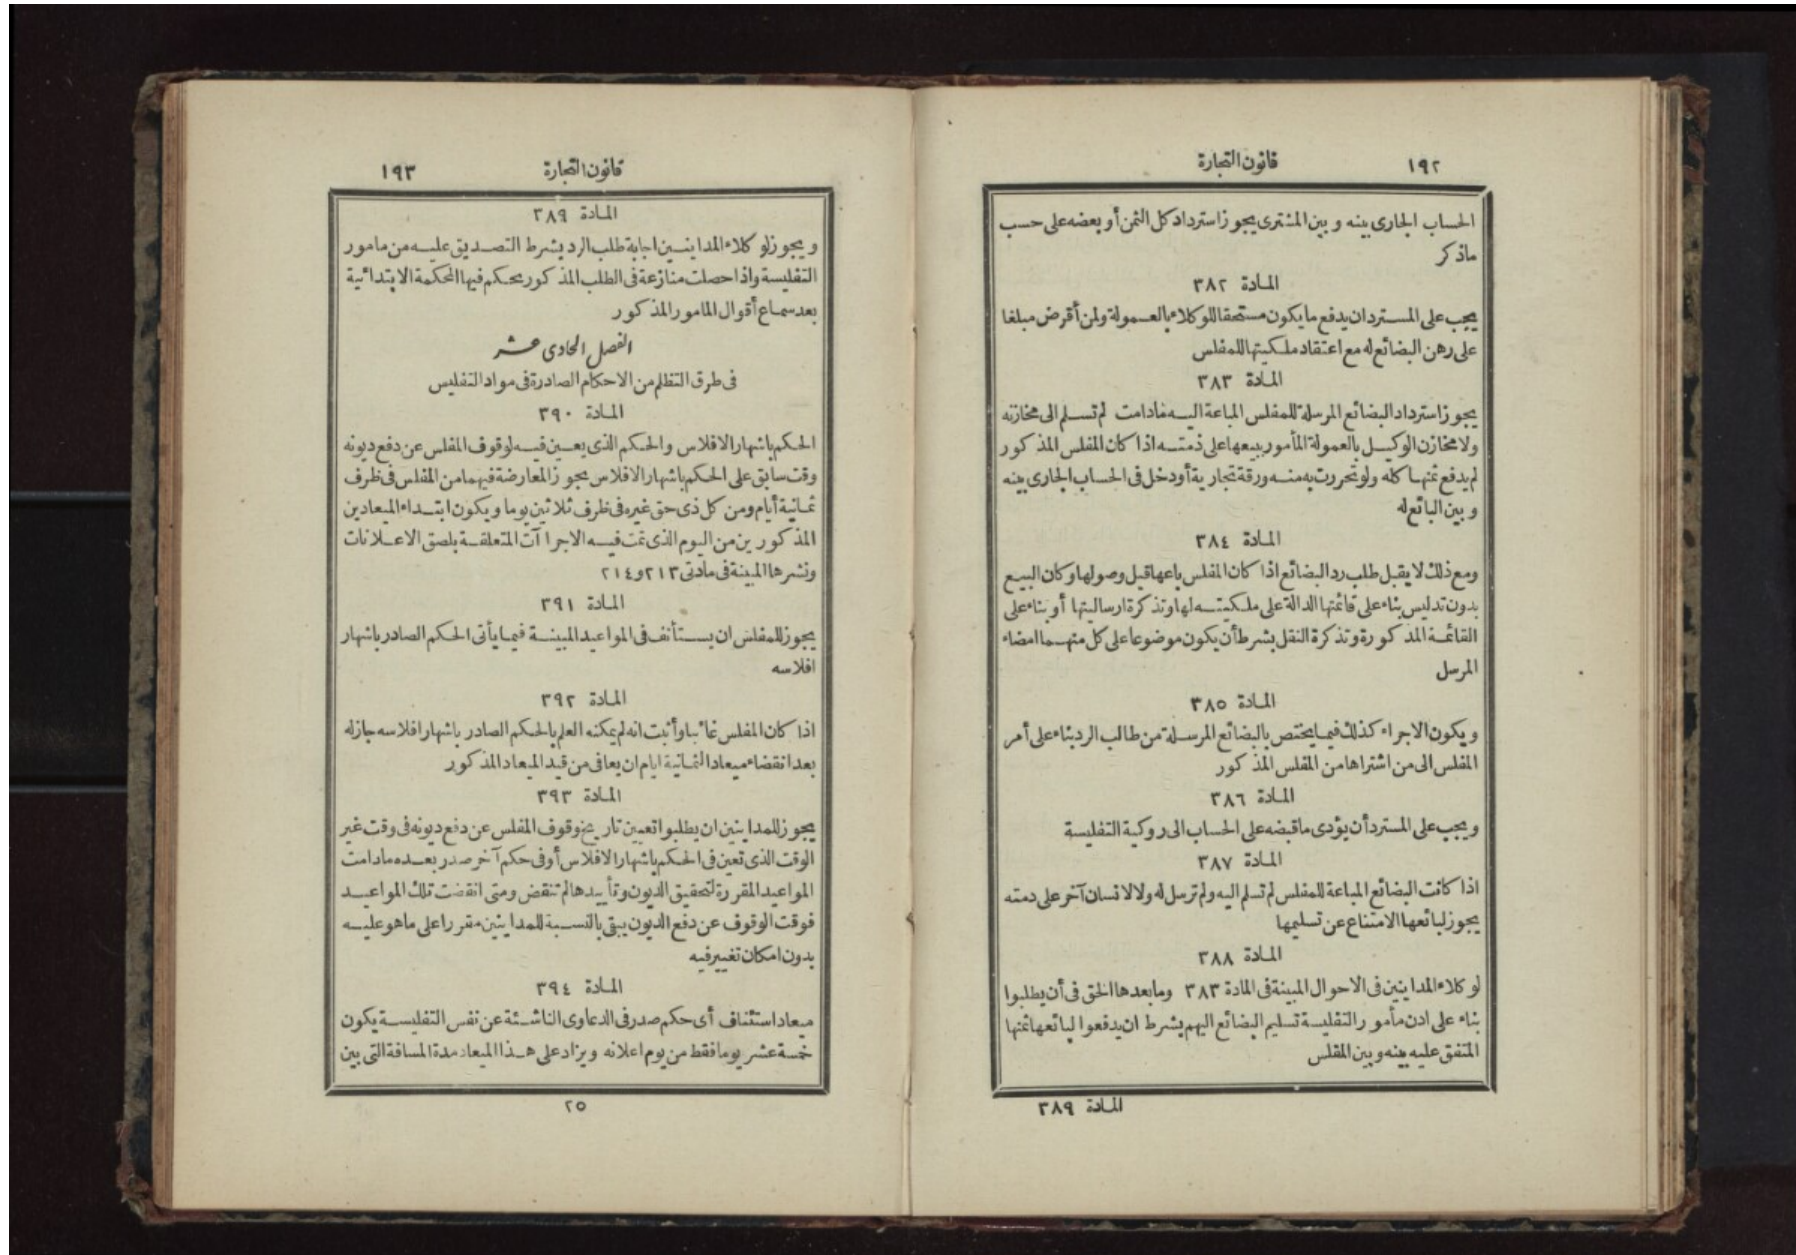 ١٩٢
قانون التجارة
الحساب الجارى بينه وبين المشترى يجوز استرداد كل الثمن أو بعضه على حسب
ماذكر
المادة ٣٨٢
يجب على المسترد ان يدفع ما يكون مستحقا للوكلاء بالعمولة ولمن أقرض مبلغا
على رهن البضائع له مع اعتقاد ملكيتها للمفلس
المادة ٣٨٣
يجوز استرداد البضائع المرسلة للمفلس المباعة اليه مادامت لم تسلم الى مخازنه
ولا مخازن الوكيل بالعمولة المأمور ببيعها على ذمته اذا كان المفلس المذكور
لم يدفع ثمنها كله ولو تحررت به منه ورقة تجارية أو دخل فى الحساب الجارى بينه
وبين البائع له
المادة ٣٨٤
ومع ذلك لا يقبل طلب رد البضائع اذا كان المفلس باعها قبل وصولها وكان البيع
بدون تدليس بناء على قائمتها الدالة على ملكيته لها وتذكرة ارساليتها أو بناء على
القائمة المذكورة وتذكرة النقل بشرط أن يكون موضوعا على كل منهما امضاء
المرسل
المادة ٣٨٥
ويكون الاجراء كذلك فيما يختص بالبضائع المرسلة من طالب الرد بناء على أمر
المفلس الى من اشتراها من المفلس المذكور
المادة ٣٨٦
ويجب على المسترد أن يؤدى ما قبضه على الحساب الى روكية التفليسة
المادة ٣٨٧
اذا كانت البضائع المباعة للمفلس لم تسلم اليه ولم ترسل له ولا لانسان آخر على ذمته
يجوز لبائعها الامتناع عن تسليمها
المادة ٣٨٨
لوكلاء المداينين فى الاحوال المبينة فى المادة ٣٨٣ وما بعدها الحق فى أن يطلبوا
بناء على اذن مأمور التفليسة تسليم البضائع اليهم بشرط ان يدفعوا لبائعها ثمنها
المتفق عليه بينه وبين المفلس
المادة ٣٨٩
قانون التجارة
١٩٣
المادة ٣٨٩
ويجوز لوكلاء المداينين اجابة طلب الرد بشرط التصديق عليه من مامور
التفليسة واذا حصلت منازعة فى الطلب المذكور يحكم فيها المحكمة الابتدائية
بعد سماع أقوال المامور المذكور
الفصل الحادى عشر
فى طرق التظلم من الاحكام الصادرة فى مواد التفليس
المادة ٣٩٠
الحكم باشهار الافلاس والحكم الذى يعين فيه لوقوف المفلس عن دفع ديونه
وقت سابق على الحكم باشهار الافلاس يجوز المعارضة فيهما من المفلس فى ظرف
ثمانية أيام ومن كل ذى حق غيره فى ظرف ثلاثين يوما ويكون ابتداء الميعادين
المذكورين من اليوم الذى تمت فيه الاجراآت المتعلقة بلصق الاعلانات
ونشرها المبينة فى مادتى ٢١٣ و ٢١٤
المادة ٣٩١
يجوز للمفلس ان يستأنف فى المواعيد المبينة فيما يأتى الحكم الصادر باشهار
افلاسه
المادة ٣٩٢
اذا كان المفلس غائبا وأثبت انه لم يمكنه العلم بالحكم الصادر باشهار افلاسه جاز له
بعد انقضاء ميعاد الثمانية ايام ان يعافى من قيد الميعاد المذكور
المادة ٣٩٣
يجوز للمداينين ان يطلبوا تعيين تاريخ وقوف المفلس عن دفع ديونه فى وقت غير
الوقت الذى تعين فى الحكم باشهار الافلاس أو فى حكم آخر صدر بعده مادامت
المواعيد المقررة لتحقيق الديون وتأييدها لم تنقض ومتى انقضت تلك المواعيد
فوقت الوقوف عن دفع الديون يبقى بالنسبة للمداينين مقررا على ما هو عليه
بدون امكان تغيير فيه
المادة ٣٩٤
ميعاد استئناف أى حكم صدر فى الدعاوى الناشئة عن نفس التفليسة يكون
خمسة عشر يوما فقط من يوم اعلانه ويزاد على هذا الميعاد مدة المسافة التى بين
٢٥